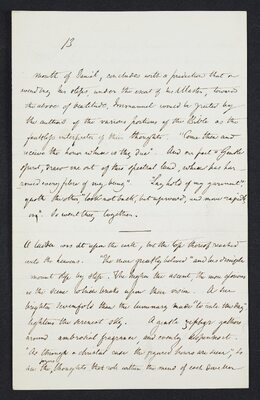 13
mouth of Daniel, concludes with a prediction that on
wending his steps, under the escort of his Master, towards
the abodes of beatitude, Immanuel would be greeted by
the authors of the various portions of the Bible as the
faultless interpreter of their thoughts. "Come thou and
receive the honor which is thy due." And one put a Gentle
Spirit, draw me out of this spectral land, which has har-
rowed every fibre of my being". "Lay hold of my garment",
quoth the other, "look not back, but upward, and move rapidly
on". So went they together.
A ladder was set upon the earth, but the top thereof reached
unto the heavens. "The man greatly beloved" and his disciple
mount step by step. The higher the ascent, the more glorious
is the scene which breaks upon their vision. A Sun
brighter sevenfold than the luminary made "to rule this day,"
lightens the nearest sky. A gentle zephyr gathers
around ambrosial fragrance, and evenly dispenses it.
As through a chrystal vase the figures borne are seen, so
are the thoughts that roll within the mind of each dweller